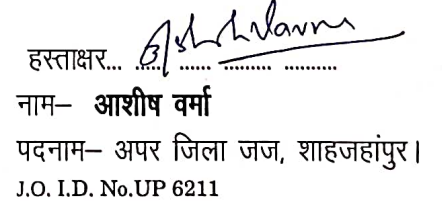 हस्ताक्षर... ...... ...... ......... ..........
नाम– आशीष वर्मा
पदनाम– अपर जिला जज, शाहजहांपुर।
J.O. I.D. No.UP 6211